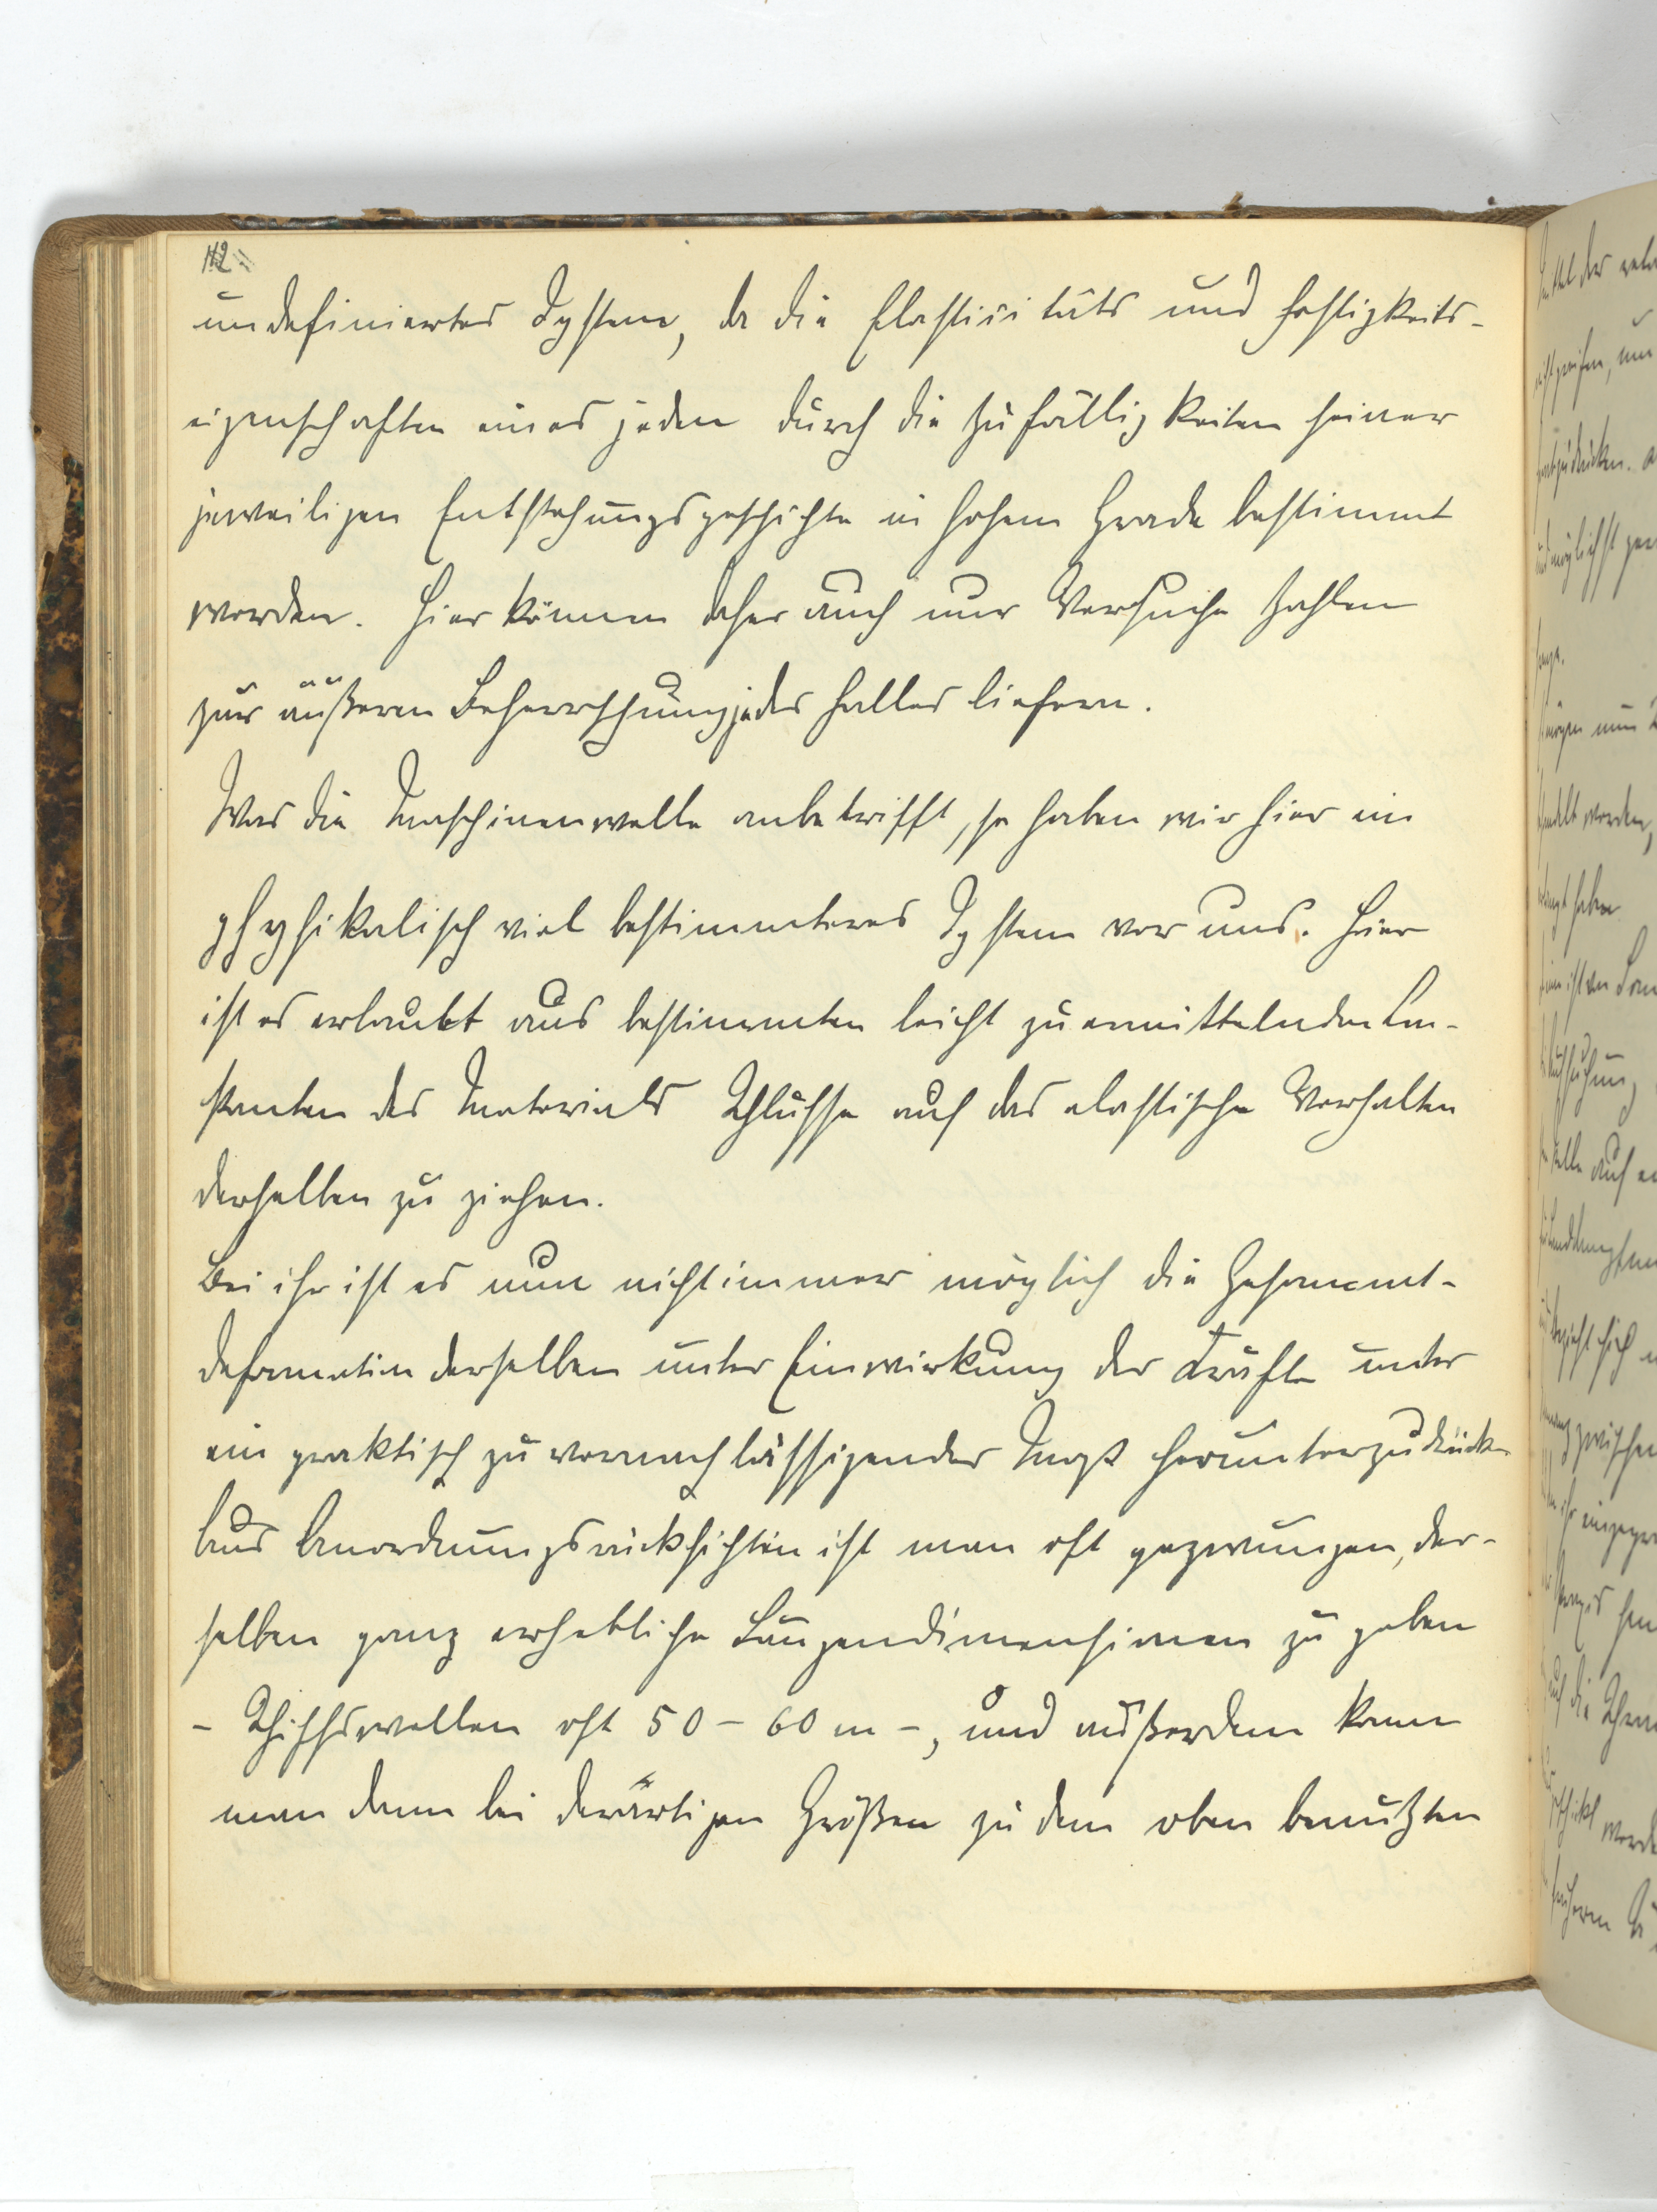 112
undefiniertes System, da die Elasticitäts und Festigkeits-
eigenschaften eines jeden durch die Zufälligkeiten seiner
jeweiligen Entstehungsgeschichte in hohem Grade bestimmt
werden. Hier können daher auch nur Versuche Zahlen
zur äußeren Beherrschung jedes Falles liefern.
Was die Maschinenwelle anbetrifft, so haben wir hier ein
physikalisch viel bestimmteres System vor uns. Hier
ist es erlaubt aus bestimmten leicht zu ermittelnden Con-
stanten des Materials Schlüsse auf das elastische Verhalten
derselben zu ziehen.
Bei ihr ist es nun nicht immer möglich die Gesammt-
deformation derselben unter Einwirkung der Kräfte unter
ein praktisch zu vernachlässigendes Maß herunterzudrücken
Aus Anordnungsrücksichten ist man oft gezwungen, der-
selben ganz erhebliche Längendimensionen zu geben
- Schiffswellen oft 50 - 60 m -, und außerdem kann
man denn bei derartigen Größen zu dem oben benutzten